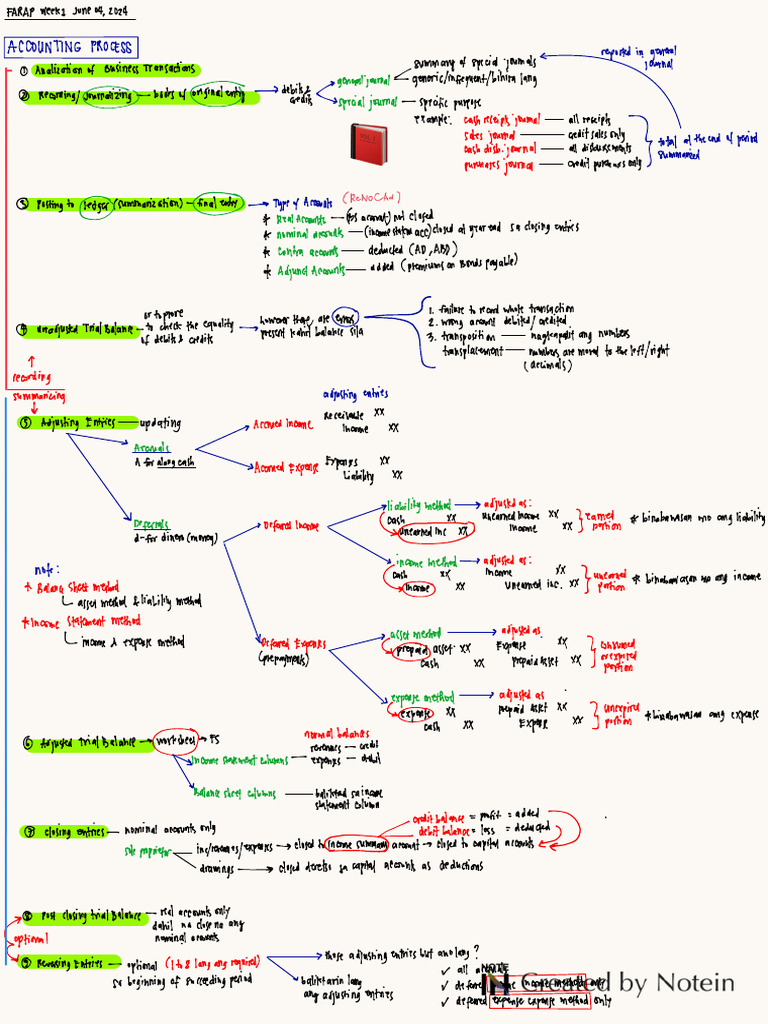 FARAP week 1 June 04, 2024
ACCOUNTING PROCESS
① Analization of Business Transactions
② Recording/ Journalizing — books of original entry
debits & credits
general journal
summary of special journals
generic/infrequent/bihira lang
reported in general journal
special journal — specific purpose
example:
cash receipts journal — all receipts
sales journal — credit sales only
cash disb. journal — all disbursements
purchases journal — credit purchases only
total at the end of period summarized
③ Posting to ledger (summarization) — final entry
Type of Accounts (ReNoCAd)
* Real Accounts — (BS account) not closed
* nominal accounts — (income statem acc) closed at year end sa closing entries
* Contra accounts — deducted (AD, ABD)
* Adjunct Accounts — added (premiums on Bonds payable)
④ Unadjusted Trial Balance
or to prove
to check the equality
of debits & credits
however there are errors
present kahit balance sila
1. failure to record whole transaction
2. wrong account debited/ credited
3. transposition — nagkapalit ang numbers
transplacement — numbers are moved to the left/right
(decimals)
recording
summarizing
⑤ Adjusting Entries — updating
adjusting entries
Accruals
A for along cash
Accrued Income
Receivable XX
Income XX
Accrued Expense
Expenses XX
Liability XX
Deferrals
d-for dinero (money)
Deferred Income
liability method
cash XX
unearned inc XX
adjusted as:
unearned income XX
income XX
earned portion
* binabawasan mo ang liability
income method
cash XX
income XX
adjusted as:
income XX
unearned inc. XX
unearned portion
* binabawasan mo ang income
note:
* Balance Sheet method
asset method & liability method
* Income Statement method
income & expense method
Deferred Expenses
(prepayments)
asset method
prepaid asset XX
cash XX
adjusted as:
Expense XX
prepaid asset XX
consumed or expired portion
expense method
expense XX
cash XX
adjusted as
prepaid asset XX
Expense XX
unexpired portion
* binabawasan ang expense
⑥ Adjusted Trial Balance → worksheet → FS
Income statement columns
normal balances
revenues — credit
expenses — debit
Balance sheet columns — baliktad sa income
statement column
⑦ closing entries — nominal accounts only
credit balance = profit = added
debit balance = loss = deducted
sole proprietor
inc/revenues/expenses → closed to income summary account → closed to capital accounts
drawings → closed deretso sa capital accounts as deductions
⑧ Post closing trial Balance — real accounts only
dahil na close na ang
nominal accounts
optional
⑨ Reversing Entries — optional (1 to 8 lang ang required)
sa beginning of succeeding period
those adjusting entries but ano lang?
baliktarin lang
ang adjusting entries
✓ all
✓ deferred income income method only
✓ deferred expense expense method only
Created by Notein